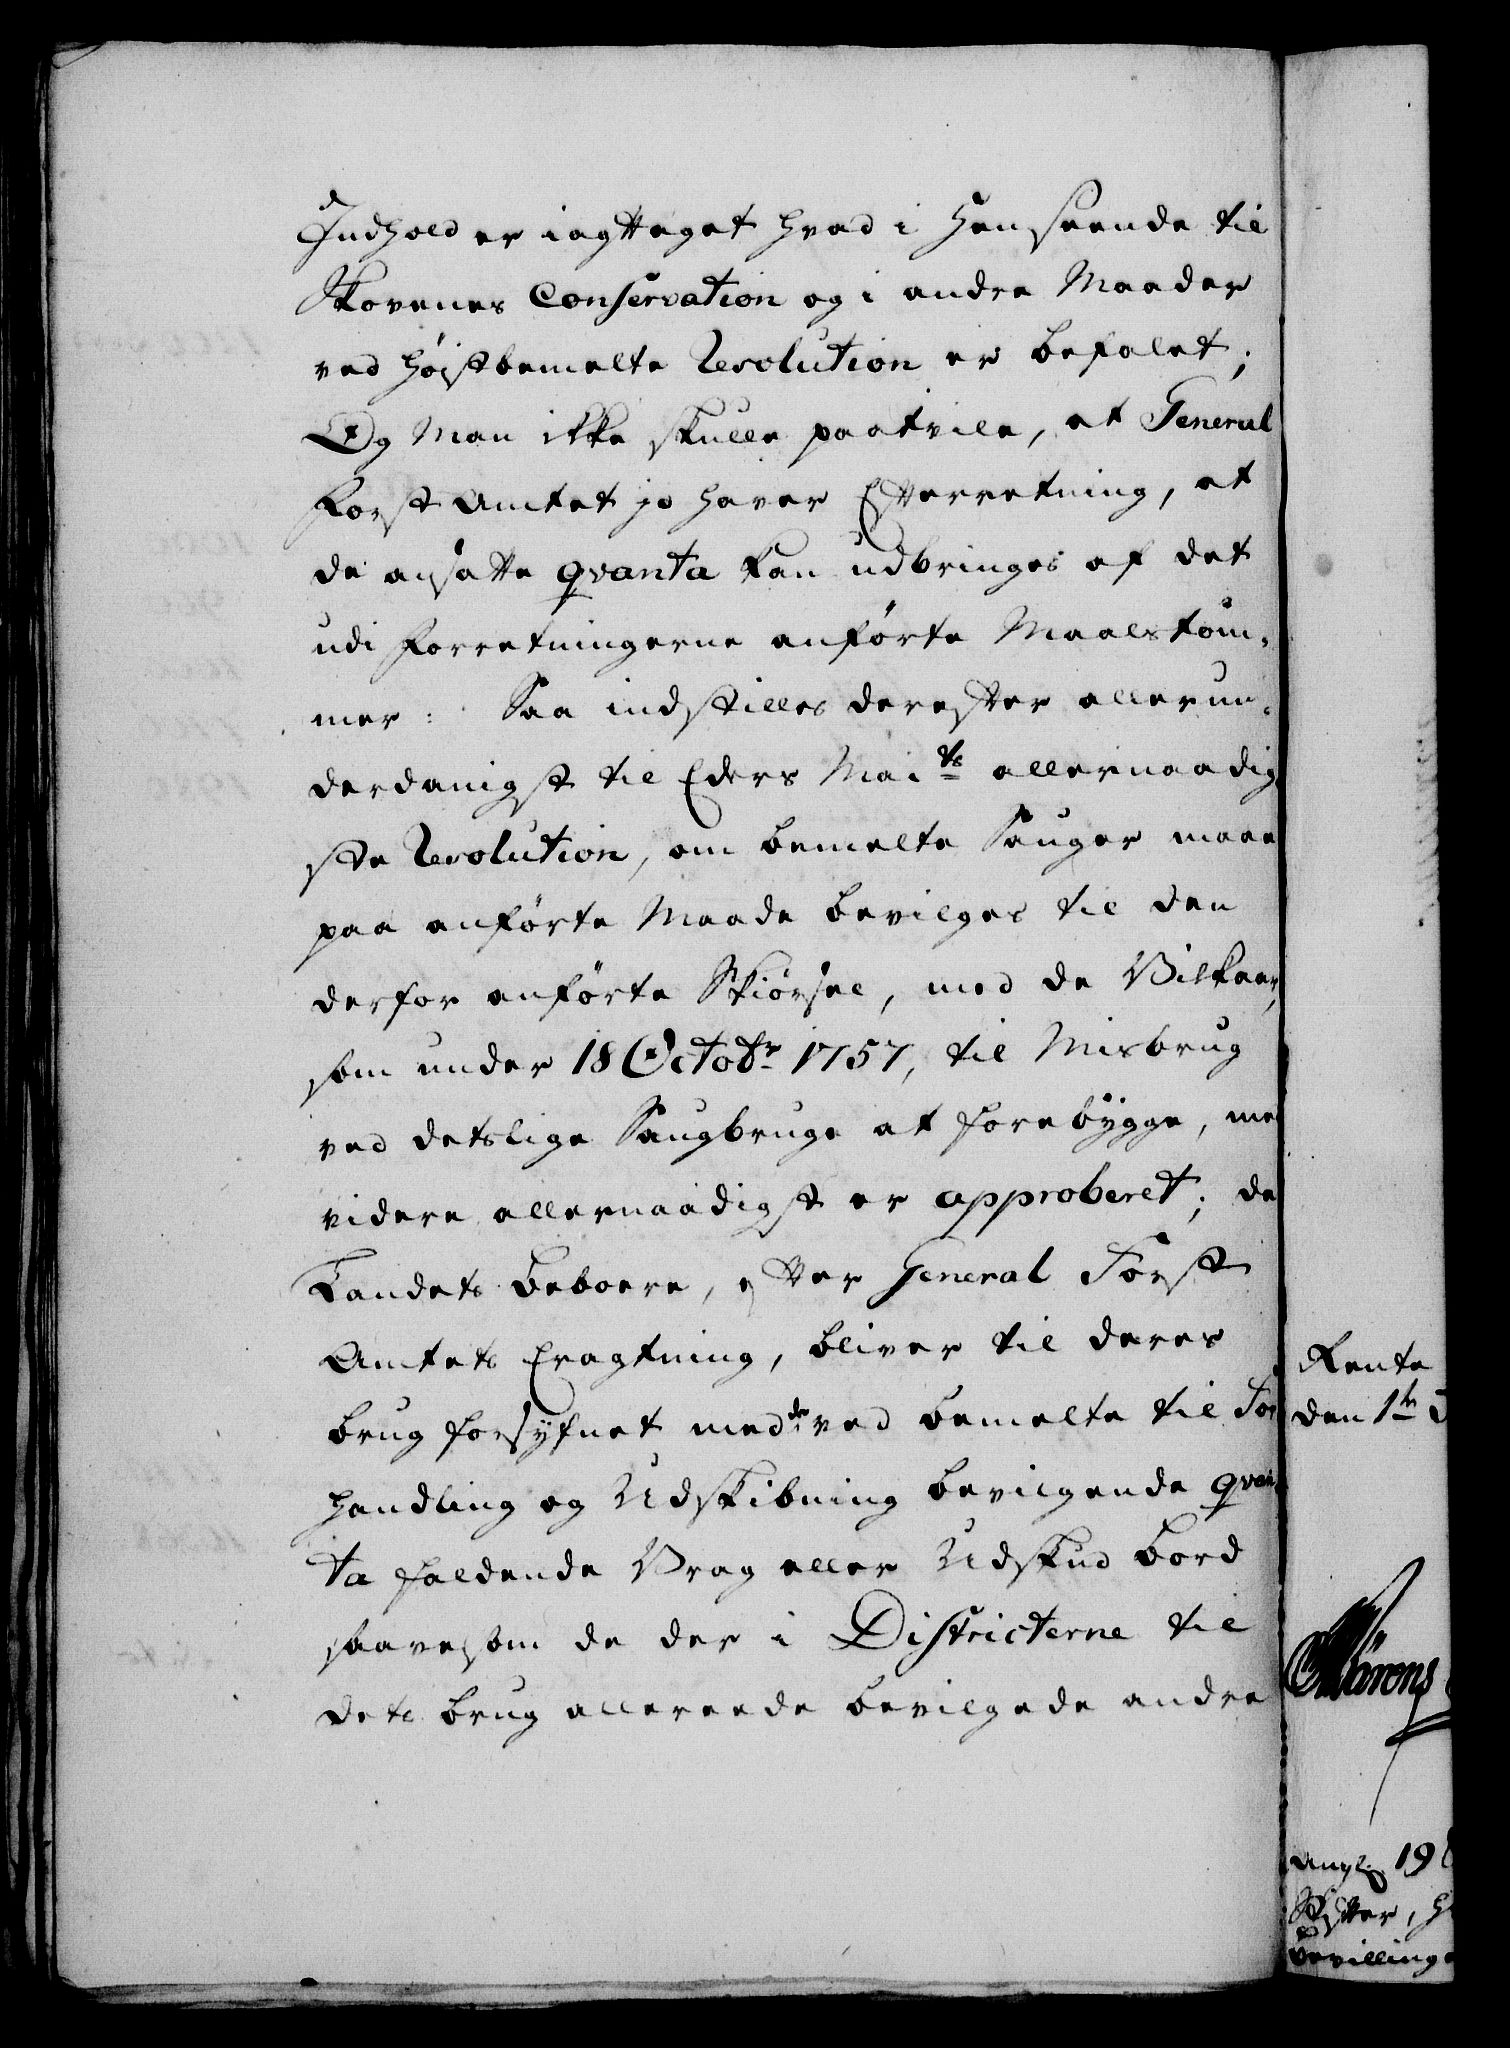 Indhold er iagttaget hvad i Henseende til
Skovenes Conservation og i andre Maader
ved høistbemelte Resolution er befalet;
Og Man ikke skulle paatvile, at General
Forst Amtet jo haver Efterretning, at
de ansatte qvanta kan udbringes af det
udi Forretningerne anførte Maalstöm-
mer: Saa indstilles derefter allerun-
derdanigst til Eders Mai.ts allernaadig
ste Resolution, om bemelte Sauger maae
paa anførte Maade bevilges til den
derfor anførte Skiørsel, med de Vilkaar,
som under 18 Octobr. 1757, til Misbrug
ved detslige Saugbruge at forebygge, me
videre allernaadigst er approberet; da
Landets Beboere, efter General Forst
Amtets Eragtning, bliver til deres
brug forsynet med de ved bemelte til For
handling og Udskibning bevilgende qvan
ta faldende Vrag eller Udskud bord
saavelsom de der i Districterne til
dets brug allereede bevilgede andre
Rente
den 1te
19
Skifter, H
bevilling